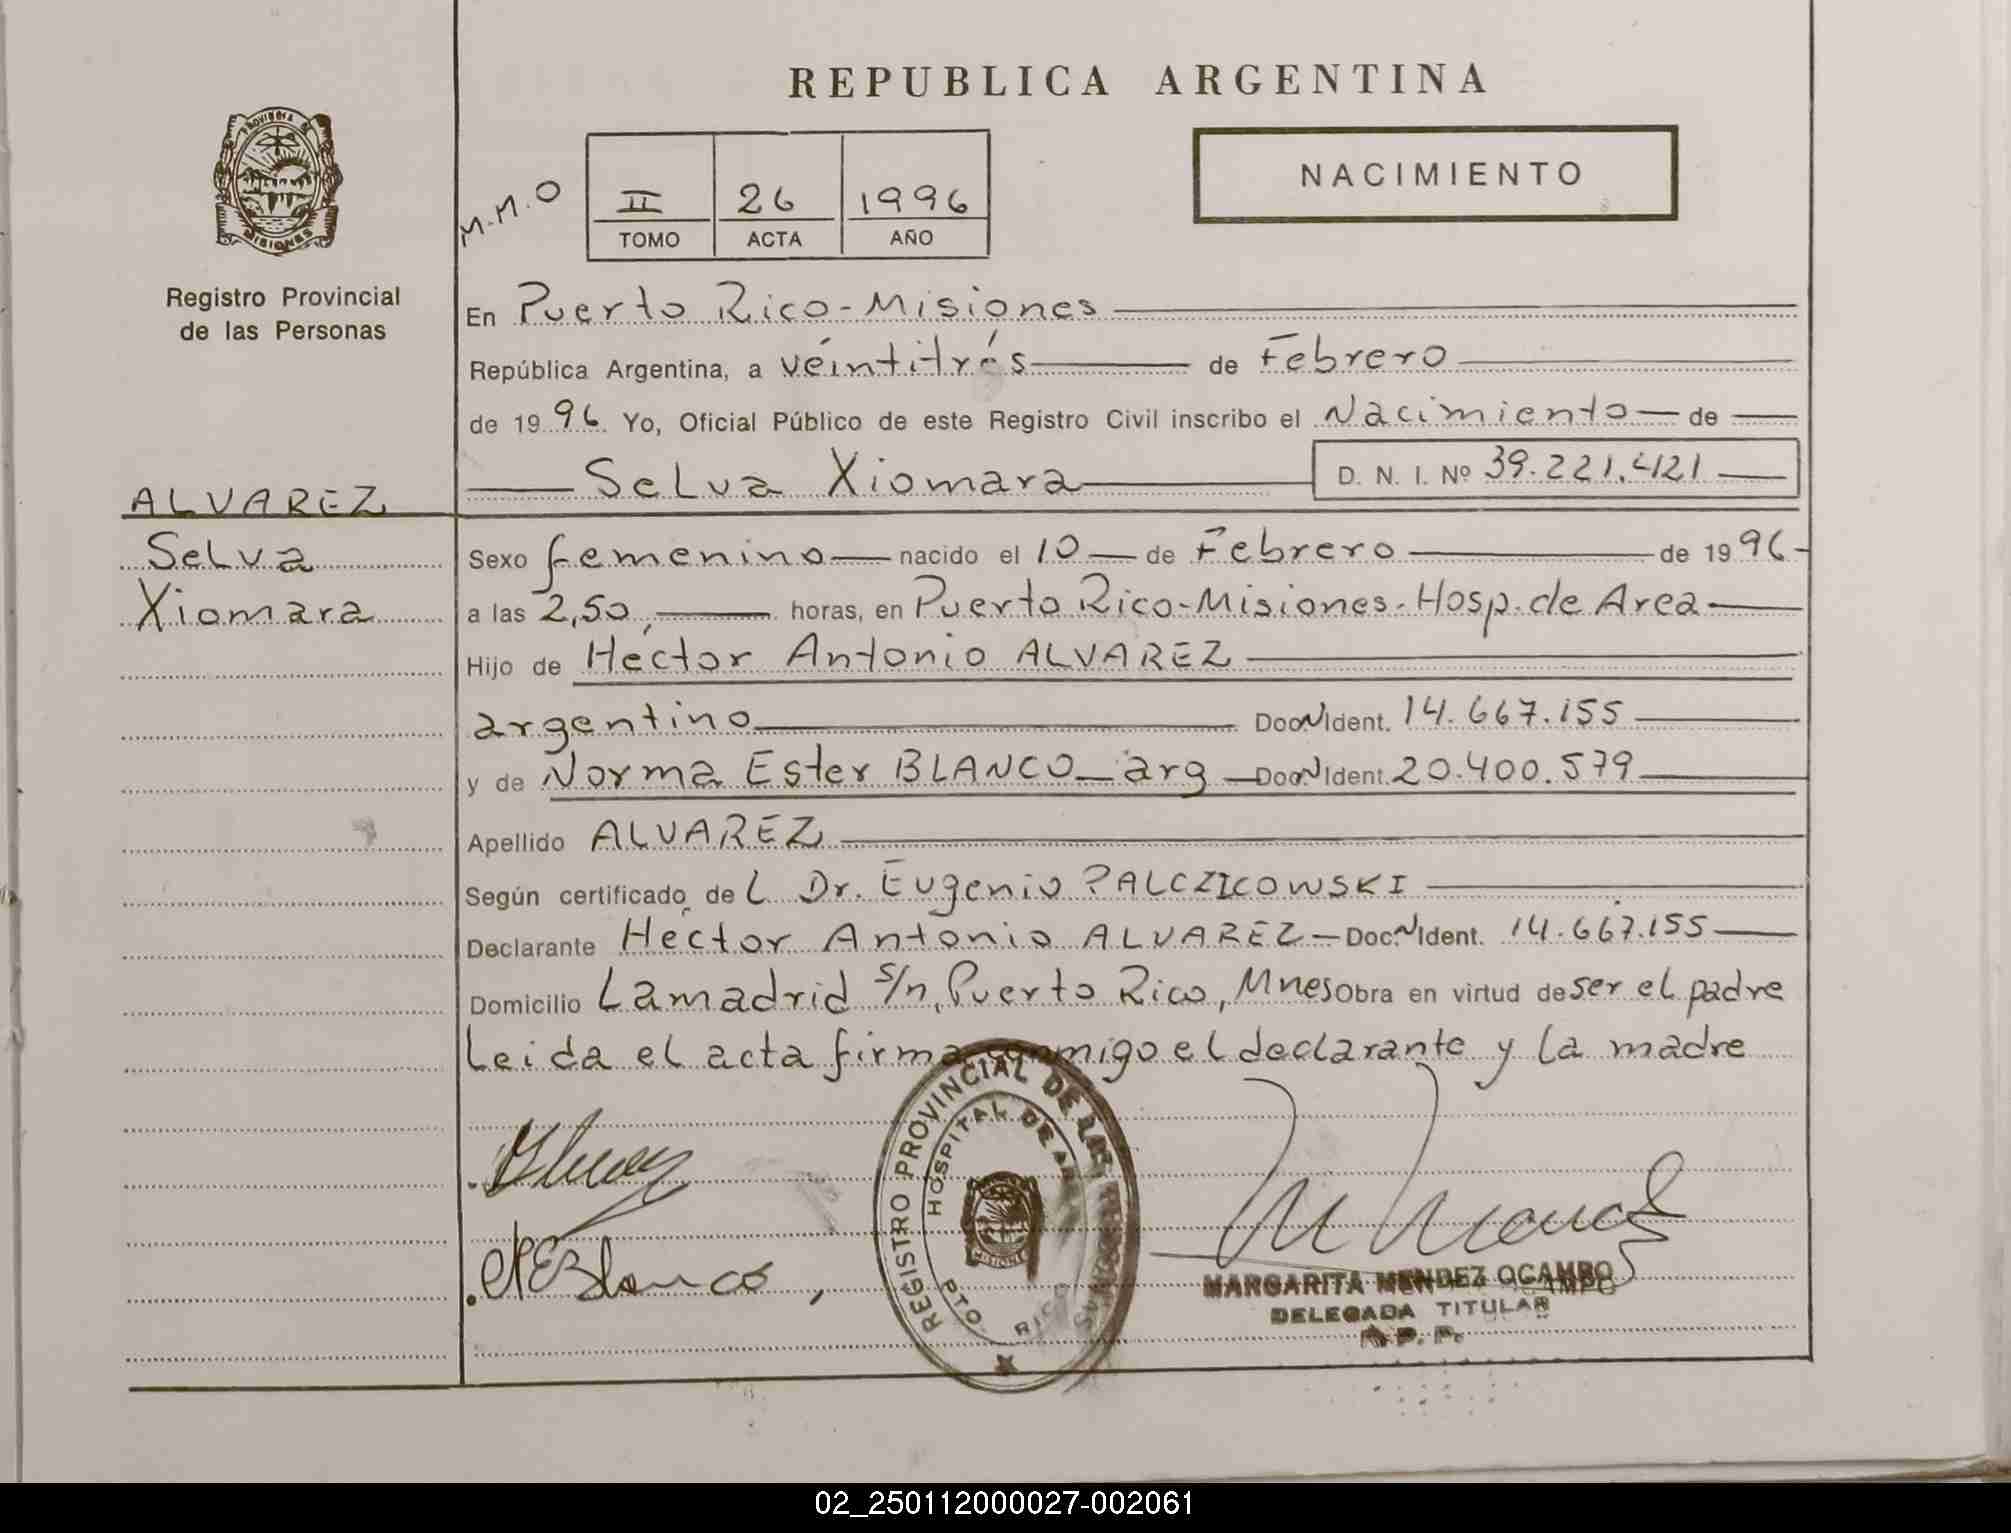 REPUBLICA ARGENTINA
PROVINCIA DE
MISIONES
Registro Provincial
de las Personas
M.M.O
II 26 1996
TOMO ACTA AÑO
NACIMIENTO
En Puerto Rico-Misiones
República Argentina, a veintitrés de Febrero
de 1996. Yo, Oficial Público de este Registro Civil inscribo el Nacimiento de
Selva Xiomara D. N. I. Nº 39.221.421
ALVAREZ
Selva
Xiomara
Sexo femenino nacido el 10 de Febrero de 1996
a las 2,50 horas, en Puerto Rico-Misiones-Hosp. de Area
Hijo de Héctor Antonio ALVAREZ
argentino Doc N Ident. 14.667.155
y de Norma Ester BLANCO arg Doc N Ident. 20.400.579
Apellido ALVAREZ
Según certificado de L Dr. Eugenio PALCZICOWSKI
Declarante Héctor Antonio ALVAREZ Doc. N Ident. 14.667.155
Domicilio Lamadrid s/n, Puerto Rico, Mnes Obra en virtud de ser el padre
Leida el acta firma conmigo el declarante y la madre
REGISTRO PROVINCIAL DE LAS PERSONAS
HOSPITAL DE AREA
PTO RICO
MISIONES
NEBlanco
MARGARITA MENDEZ OCAMPO
DELEGADA TITULAR
R.P.P.
02_250112000027-002061